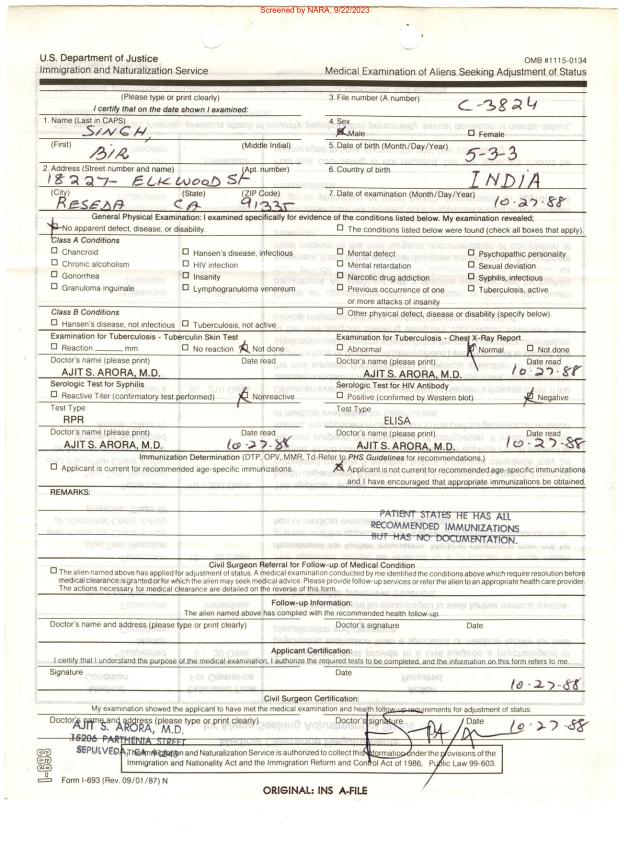 Screened by NARA, 9/22/2023
U.S. Department of Justice
Immigration and Naturalization Service
OMB #1115-0134
Medical Examination of Aliens Seeking Adjustment of Status
(Please type or print clearly)
I certify that on the date shown I examined:
3. File number (A number)
C-3824
1. Name (Last in CAPS)
SINGH,
4. Sex
Male
Female
(First)
(Middle Initial)
BIR
5. Date of birth (Month/Day/Year)
5-3-3
2. Address (Street number and name)
(Apt. number)
18227- ELKWOOD St
6. Country of birth
INDIA
(City)
(State)
(ZIP Code)
RESEDA CA 91335
7. Date of examination (Month/Day/Year)
10-27-88
General Physical Examination: I examined specifically for evidence of the conditions listed below. My examination revealed;
No apparent defect, disease, or disability.
The conditions listed below were found (check all boxes that apply).
Class A Conditions
Chancroid
Hansen's disease, infectious
Mental defect
Psychopathic personality
Chronic alcoholism
HIV infection
Mental retardation
Sexual deviation
Gonorrhea
Insanity
Narcotic drug addiction
Syphilis, infectious
Granuloma inguinale
Lymphogranuloma venereum
Previous occurrence of one
or more attacks of insanity
Tuberculosis, active
Class B Conditions
Other physical defect, disease or disability (specify below).
Hansen's disease, not infectious
Tuberculosis, not active
Examination for Tuberculosis - Tuberculin Skin Test
Reaction ____ mm
No reaction
Not done
Examination for Tuberculosis - Chest X-Ray Report
Abnormal
Normal
Not done
Doctor's name (please print)
Date read
AJIT S. ARORA, M.D.
Doctor's name (please print)
Date read
AJIT S. ARORA, M.D.
10-27-88
Serologic Test for Syphilis
Reactive Titer (confirmatory test performed)
Nonreactive
Serologic Test for HIV Antibody
Positive (confirmed by Western blot)
Negative
Test Type
RPR
Test Type
ELISA
Doctor's name (please print)
Date read
AJIT S. ARORA, M.D.
10-27-88
Doctor's name (please print)
Date read
AJIT S. ARORA, M.D.
10-27-88
Immunization Determination (DTP, OPV, MMR, Td-Refer to PHS Guidelines for recommendations.)
Applicant is current for recommended age-specific immunizations.
Applicant is not current for recommended age-specific immunizations
and I have encouraged that appropriate immunizations be obtained.
REMARKS:
PATIENT STATES HE HAS ALL
RECOMMENDED IMMUNIZATIONS
BUT HAS NO DOCUMENTATION.
Civil Surgeon Referral for Follow-up of Medical Condition
The alien named above has applied for adjustment of status. A medical examination conducted by me identified the conditions above which require resolution before
medical clearance is granted or for which the alien may seek medical advice. Please provide follow-up services or refer the alien to an appropriate health care provider.
The actions necessary for medical clearance are detailed on the reverse of this form.
Follow-up Information:
The alien named above has complied with the recommended health follow-up.
Doctor's name and address (please type or print clearly)
Doctor's signature
Date
Applicant Certification:
I certify that I understand the purpose of the medical examination, I authorize the required tests to be completed, and the information on this form refers to me.
Signature
Date
10-27-88
Civil Surgeon Certification:
My examination showed the applicant to have met the medical examination and health follow-up requirements for adjustment of status.
Doctor's name and address (please type or print clearly)
Doctor's signature
Date
AJIT S. ARORA, M.D.
15206 PARTHENIA STREET
SEPULVEDA, CA
10-27-88
The Immigration and Naturalization Service is authorized to collect this information under the provisions of the
Immigration and Nationality Act and the Immigration Reform and Control Act of 1986, Public Law 99-603.
Form I-693 (Rev. 09/01/87) N
ORIGINAL: INS A-FILE